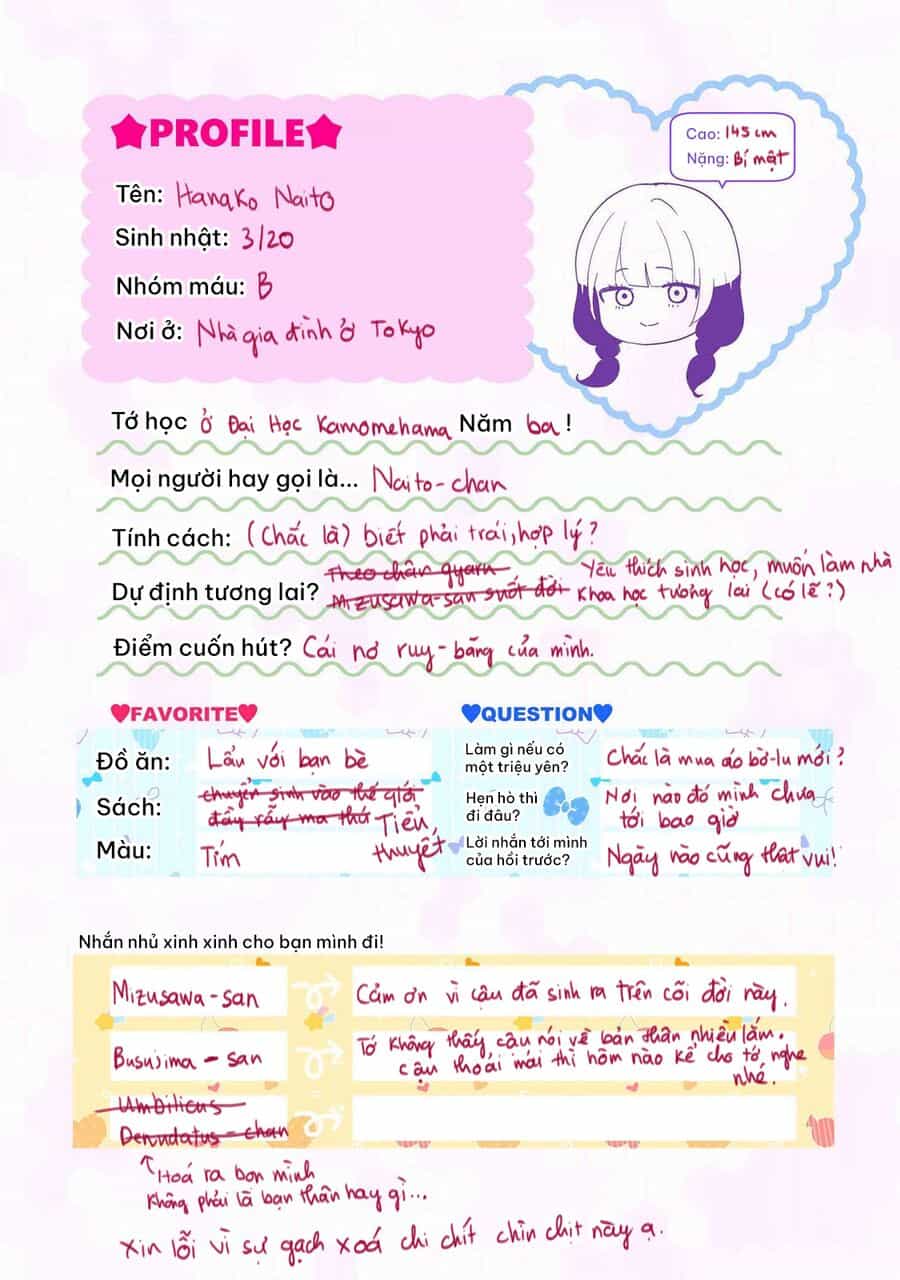 ★PROFILE★
Cao: 145 cm
Nặng: Bí mật
Tên: Hanako Naito
Sinh nhật: 3/20
Nhóm máu: B
Nơi ở: Nhà gia đình ở Tokyo
Tớ học ở Đại Học Kamomehama Năm ba!
Mọi người hay gọi là... Naito-chan
Tính cách: (Chắc là) biết phải trái, hợp lý?
Dự định tương lai? Theo chân gyaru Mizusawa-san suốt đời
Yêu thích sinh học, muốn làm nhà
khoa học tương lai (có lẽ?)
Điểm cuốn hút? Cái nơ ruy-băng của mình.
♥FAVORITE♥
Đồ ăn: Lẩu với bạn bè
Sách: chuyển sinh vào thế giới
đầy rẫy ma thú Tiểu
thuyết
Màu: Tím
♥QUESTION♥
Làm gì nếu có
một triệu yên?
Chắc là mua áo bờ-lu mới?
Hẹn hò thì
đi đâu?
Nơi nào đó mình chưa
tới bao giờ
Lời nhắn tới mình
của hồi trước?
Ngày nào cũng thật vui!
Nhắn nhủ xinh xinh cho bạn mình đi!
Mizusawa-san
Cảm ơn vì cậu đã sinh ra trên cõi đời này.
Busujima-san
Tớ không thấy cậu nói về bản thân nhiều lắm.
Cậu thoải mái thì hôm nào kể cho tớ nghe
nhé.
Umbilicus
Denudatus-chan
↑Hoá ra bọn mình
không phải là bạn thân hay gì...
Xin lỗi vì sự gạch xoá chi chít chìn chịt này ạ.